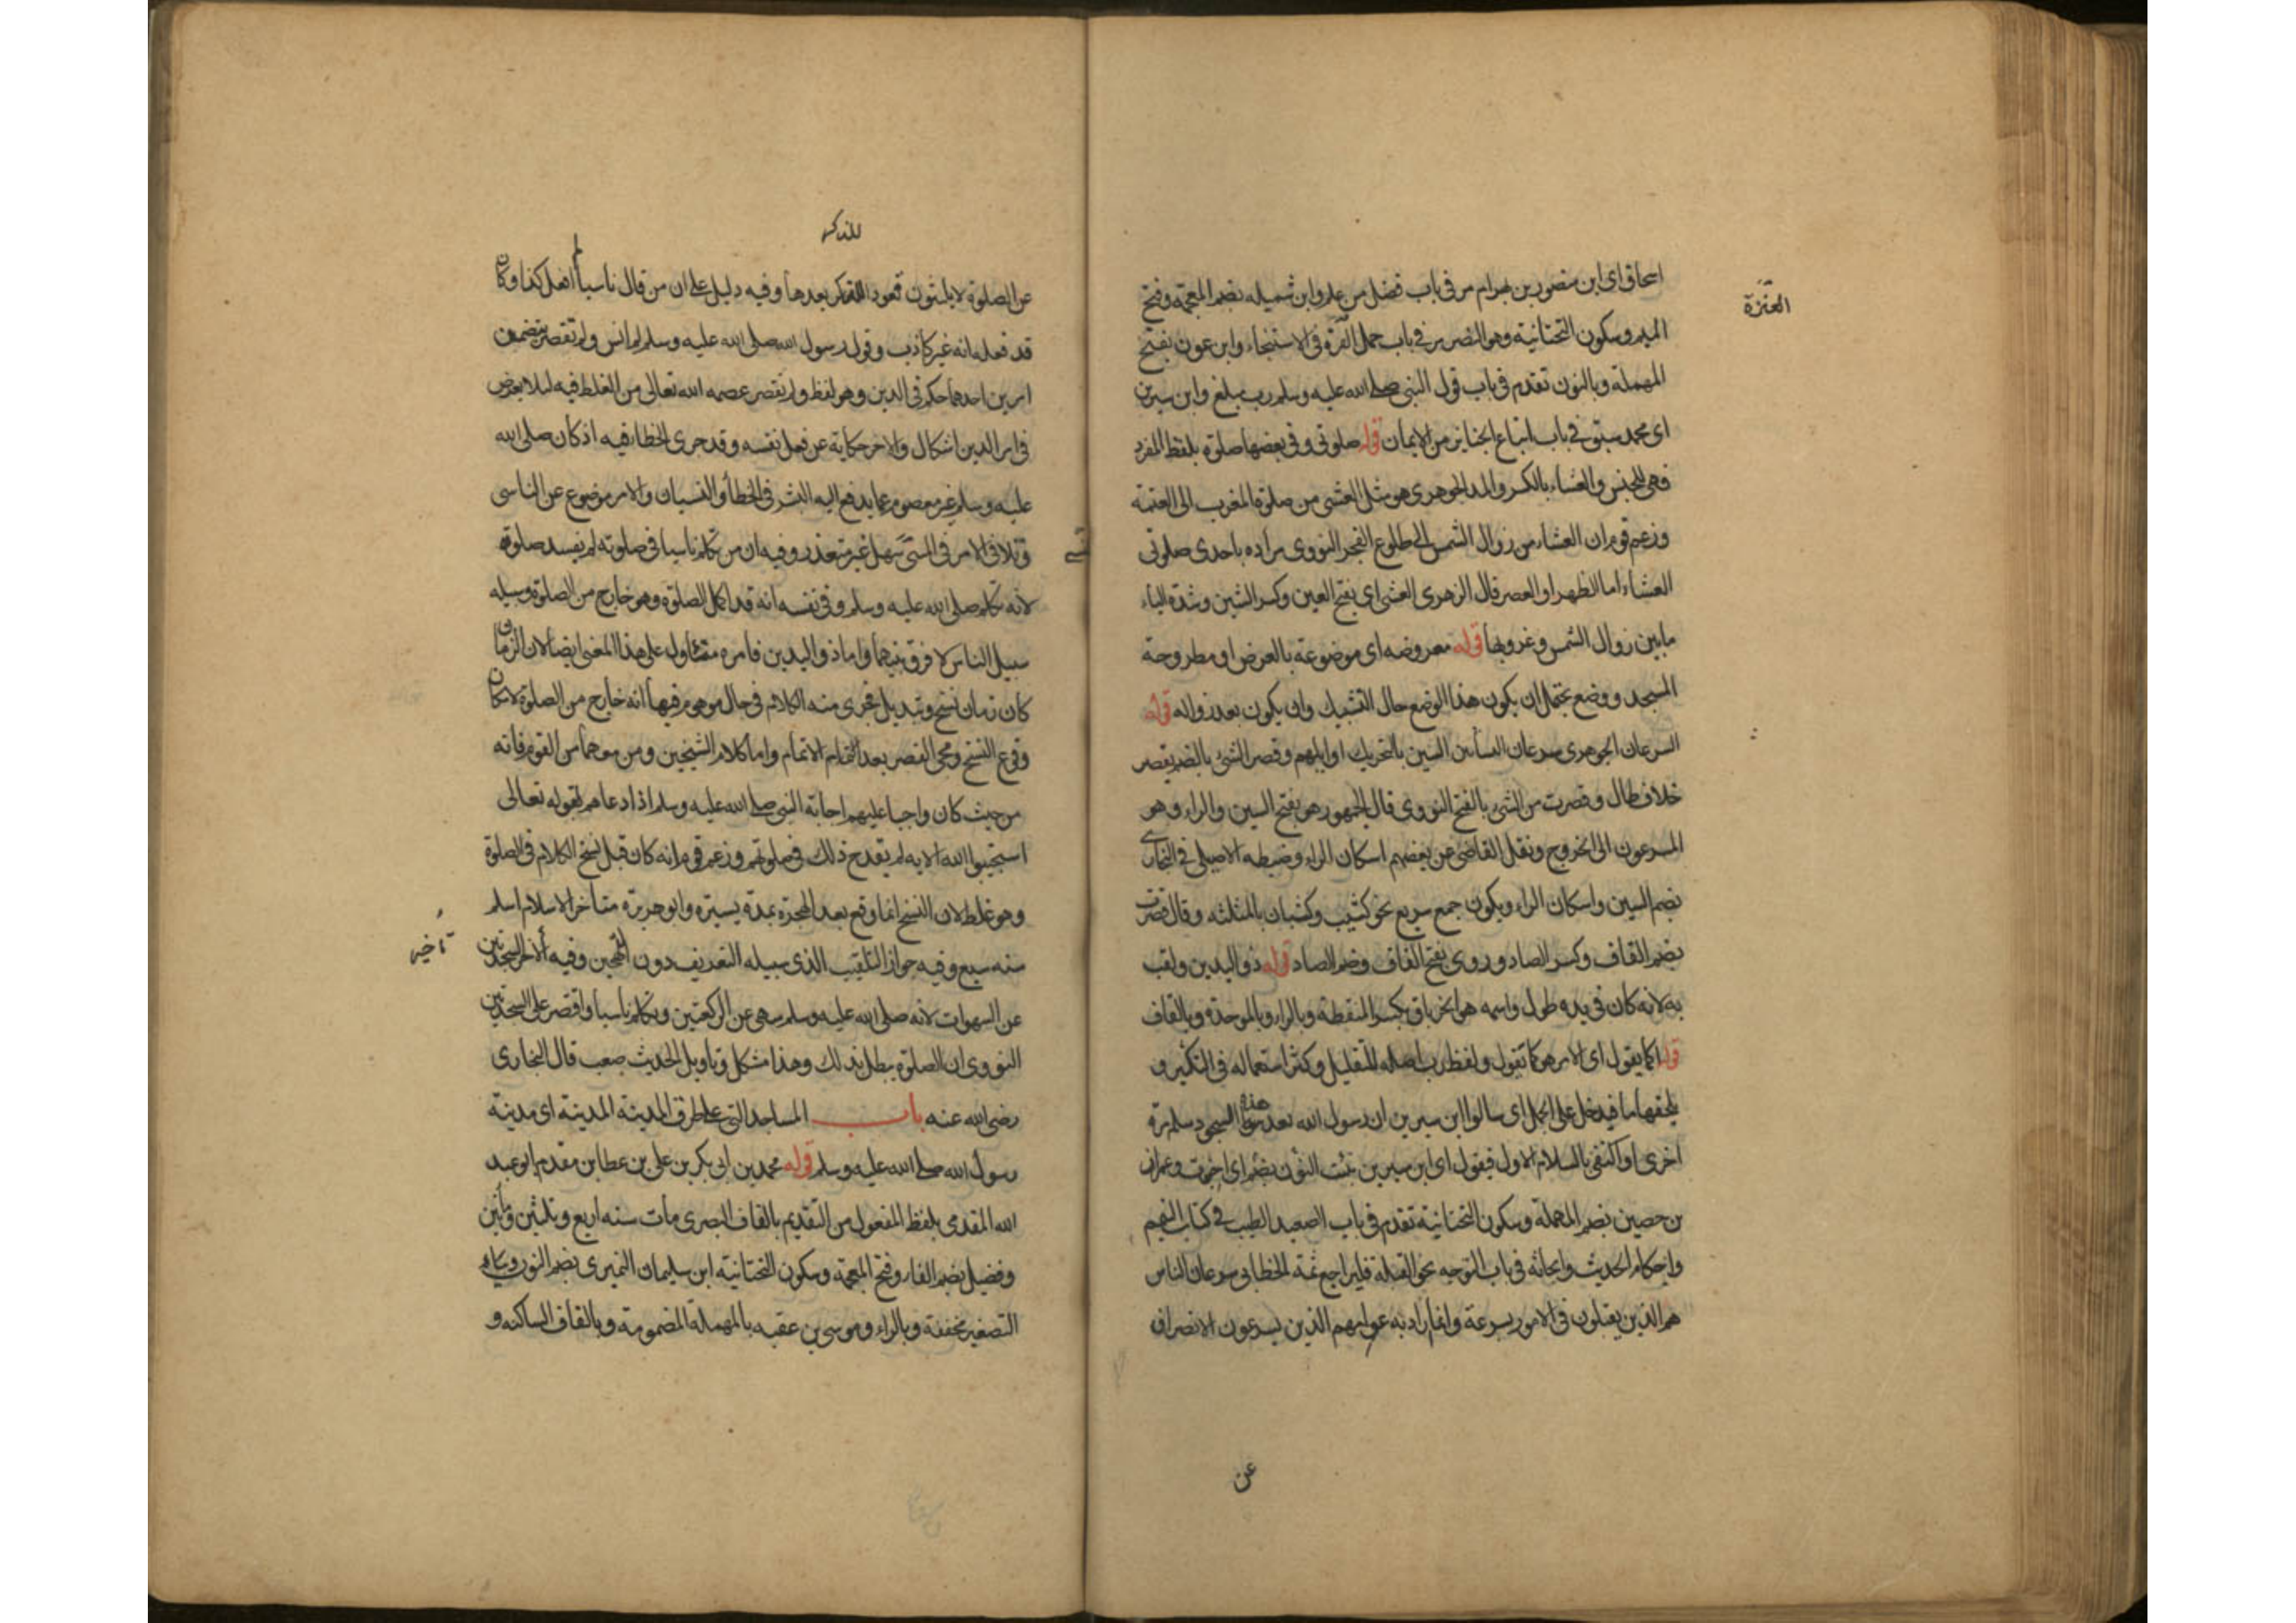 العنزة
اسحاق اى ابن منصور بن بهرام مر فى باب فضل من علم وابن شميله بضم المعجمة وفتح
الميم وسكون التحتانية وهو النضر مر فى باب حمل العنزة فى الاستنجاء وابن عون بفتح
المهملة وبالنون تقدم فى باب قول النبى صلى الله عليه وسلم رب مبلغ وابن سيرين
اى محمد سبق فى باب اتباع الجنايز من الايمان قوله صلوتى وفى بعضها صلوة بلفظ المفرد
فهى للجنس والعشاء بالكسر والمد الجوهرى هو مثل العشى من صلوة المغرب الى العتمة
وزعم قوم ان العشاء من زوال الشمس الى طلوع الفجر النووى مراده باحدى صلوتى
العشاء اما الظهر او العصر قال الزهرى العشى اى بفتح العين وكسر الشين وشدة الياء
مابين زوال الشمس وغروبها قوله معروضه اى موضوعة بالعرض او مطروحة
المسجد ووضع يحتمل ان يكون هذا الوضع حال التشبيك وان يكون بعد زواله قوله
السرعان الجوهرى سرعان الناس السين بالتحريك اوايلهم وقصر الشئ بالضم يقصر
خلاف طال وقصرت من الشئ بالفتح النووى قال الجمهور هو بفتح السين والراء وهو
المسرعون الى الخروج ونقل القاضى عن بعضهم اسكان الراء وضبطه الاصيلى فى البخارى
بضم السين واسكان الراء ويكون جمع سريع نحو كثيب وكثبان بالمثلثه وقال قصرت
بضم القاف وكسر الصاد وروى بفتح القاف وضم الصاد قوله ذو اليدين ولقب
به لانه كان فى يده طول واسمه هو الخرباق بكسر المنقطة وبالراء وبالموحدة وبالقاف
قوله اكما يقول اى الامر هو كما تقول ولفظ رب اصله للتقليل وكثر استعماله فى التكثير و
يلحقها ما فيدخل على الجمل اى سالوا ابن سيرين ان رسول الله بعد هذه السجود سلم مرة
اخرى او اكتفى بالسلام الاول فيقول اى ابن سيرين نبئت النون بضم اى اخبرت وعمران
بن حصين بضم المهملة وسكون التحتانية تقدم فى باب الصعيد الطيب فى كتاب التيمم
واحكام الحديث وابحاثه فى باب التوجه نحو القبلة فليراجع ثمة الخطابى سرعان الناس
هم الذين يقبلون فى الامور بسرعة وانما اراد به عوامهم الذين يسرعون الانصراف
عن
للذكر
عن الصلوة لا يلبثون قعود الذكر بعدها وفيه دليل على ان من قال ناسيا لم افعل كذا وكان
قد فعله انه غير كاذب وقول رسول الله صلى الله عليه وسلم لم انس ولم تقصر يتضمن
امرين احدهما حكم فى الدين وهو لفظ ولم تقصر عصمه الله تعالى من الغلط فيه ليلا يعرض
فى امر الدين اشكال والاخر حكاية عن فعل نفسه وقد جرى الخطا فيه اذ كان صلى الله
عليه وسلم غير معصوم عما يدفع اليه البشر فى الخطأ والنسيان والامر موضوع عن الناسى
وتلافى الامر فى المنسى سهل غير متعذر وفيه ان من تكلم ناسيا فى صلوته لم يفسد صلوته
لانه تكلم صلى الله عليه وسلم وفى نفسه انه قد اكمل الصلوة وهو خارج من الصلوة وسبيله
سبيل الناس لا فرق بينهما واما ذو اليدين فامره متأول على هذا المعنى ايضا لان الزمان
كان زمان نسخ وتبديل فجرى منه الكلام فى حال موهوم فيها انه خارج من الصلوة لامكان
وقوع النسخ ومجى القصر بعد الاتمام واما كلام الشيخين ومن معهما من القوم فانه
من حيث كان واجبا عليهم اجابة النبى صلى الله عليه وسلم اذا دعاهم لقوله تعالى
استجيبوا لله الايه لم يقدح ذلك فى صلوتهم وزعم قوم انه كان قبل نسخ الكلام فى الصلوة
وهو غلط لان النسخ انما وقع بعد الهجرة بمدة يسيره وابو هريره متأخر الاسلام اسلم
سنه سبع وفيه جواز التلقيب الذى سبيله التعريف دون التهجين وفيه الاخر السجدتين
تاخير
عن السهوات لانه صلى الله عليه وسلم سهى عن الركعتين وتكلم ناسيا واقتصر على السجدتين
النووى ان الصلوة يبطل بذلك وهذا مشكل وتاويل الحديث صعب قال البخارى
رضى الله عنه باب المساجد التى على طرق المدينة المدينة اى مدينة
رسول الله صلى الله عليه وسلم قوله محمد بن ابى بكر بن على بن عطا بن مقدم ابو عبد
الله المقدمى بلفظ المفعول من التقديم بالقاف البصرى مات سنه اربع وثلثين ومأتين
وفضيل بضم الفاء وفتح المعجمة وسكون التحتانية ابن سليمان النميرى بضم النون وبياء
التصغير مخففة وبالراء وموسى بن عقبه بالمهملة المضمومة وبالقاف الساكنه و